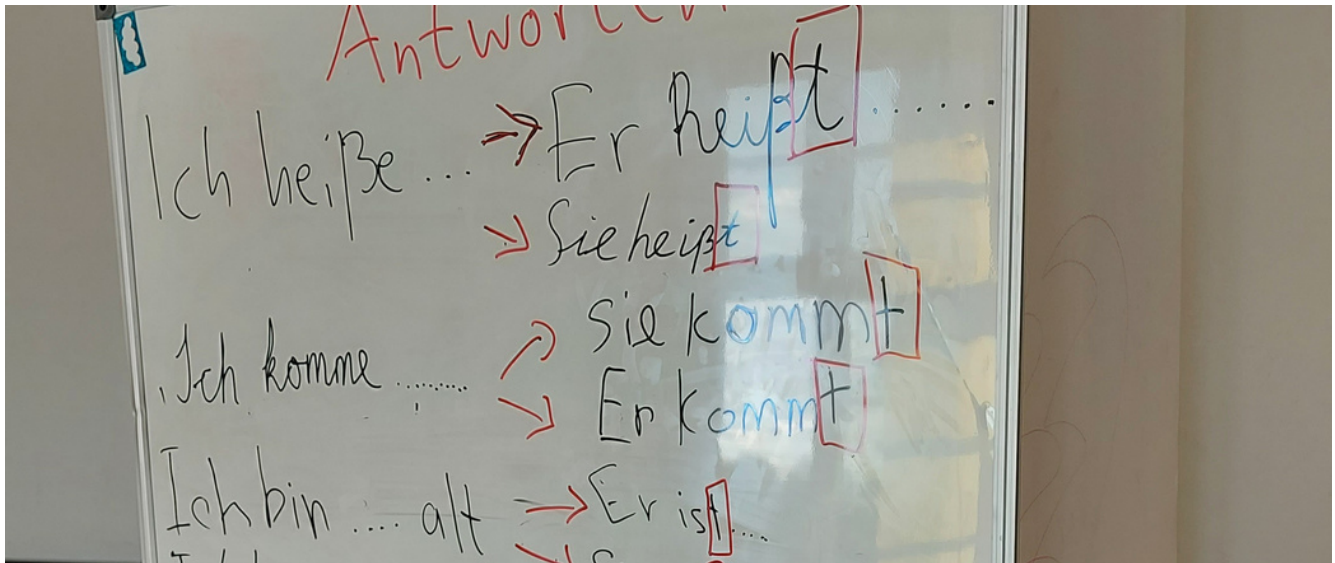 Antworten
Ich heiße ... → Er heißt ......
→ Sie heißt
Ich komme ........ → Sie kommt
→ Er kommt
Ich bin .... alt → Er ist ....